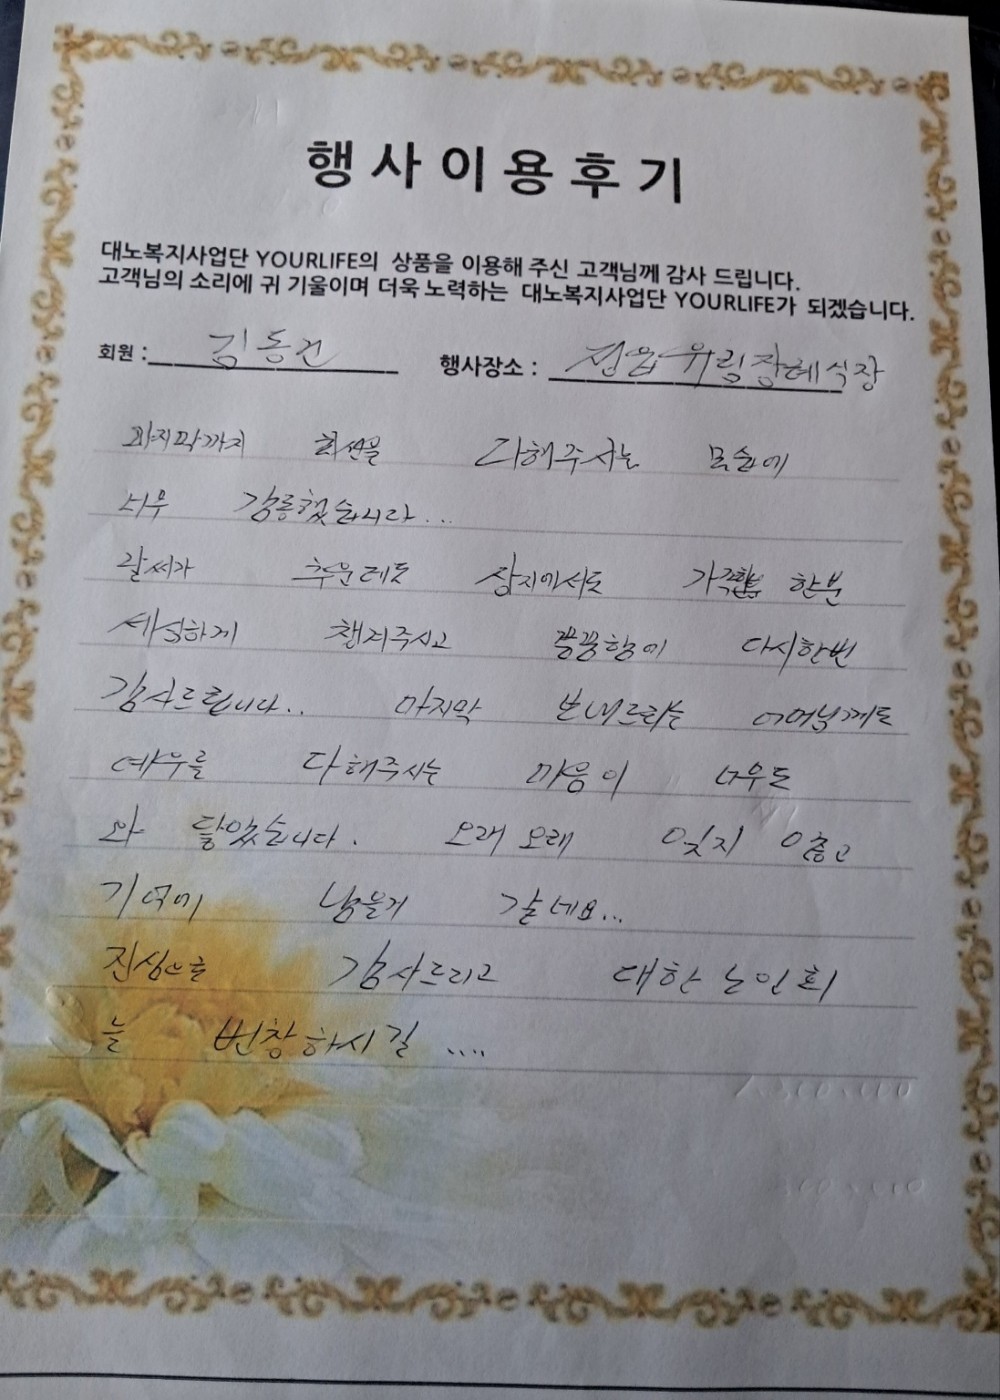 행사이용후기
대노복지사업단 YOURLIFE의 상품을 이용해 주신 고객님께 감사 드립니다.
고객님의 소리에 귀 기울이며 더욱 노력하는 대노복지사업단 YOURLIFE가 되겠습니다.
회원 : 김동건 행사장소 : 정읍 유림장례식장
마지막까지 최선을 다해주시는 모습에
너무 감동했습니다...
날씨가 추운데도 장지에서도 가족 한분
세심하게 챙겨주시고 꼼꼼함에 다시한번
감사드립니다.. 마지막 보내드리는 어머님께도
예우를 다해주시는 마음이 너무도
와 닿았습니다. 오래 오래 잊지 않고
기억에 남을거 같네요...
진심으로 감사드리고 대한노인회
늘 번창하시길 ....